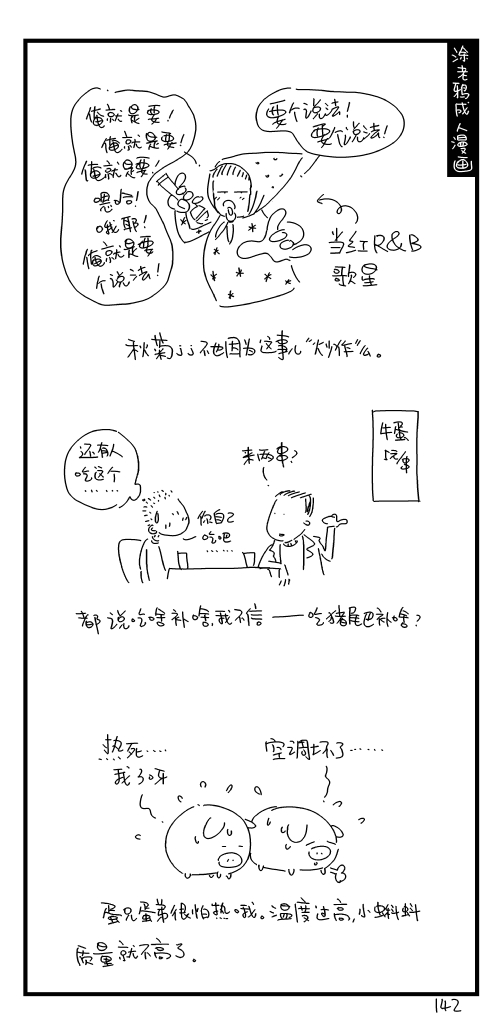 涂老鸦成人漫画
俺就是要！
俺就是要！
俺就是要！
嗯哈！
哦耶！
俺就是要
个说法！
要个说法！
要个说法！
当红R&B
歌星
秋菊jj不也因为这事儿“炒作”么。
还有人
吃这个
……
来两串？
牛蛋
5元/串
你自己
吃吧
……
都说吃啥补啥，我不信——吃猪尾巴补啥？
热死……
我了呀
空调坏了……
蛋兄蛋弟很怕热哦。温度过高，小蝌蚪
质量就不高了。
142